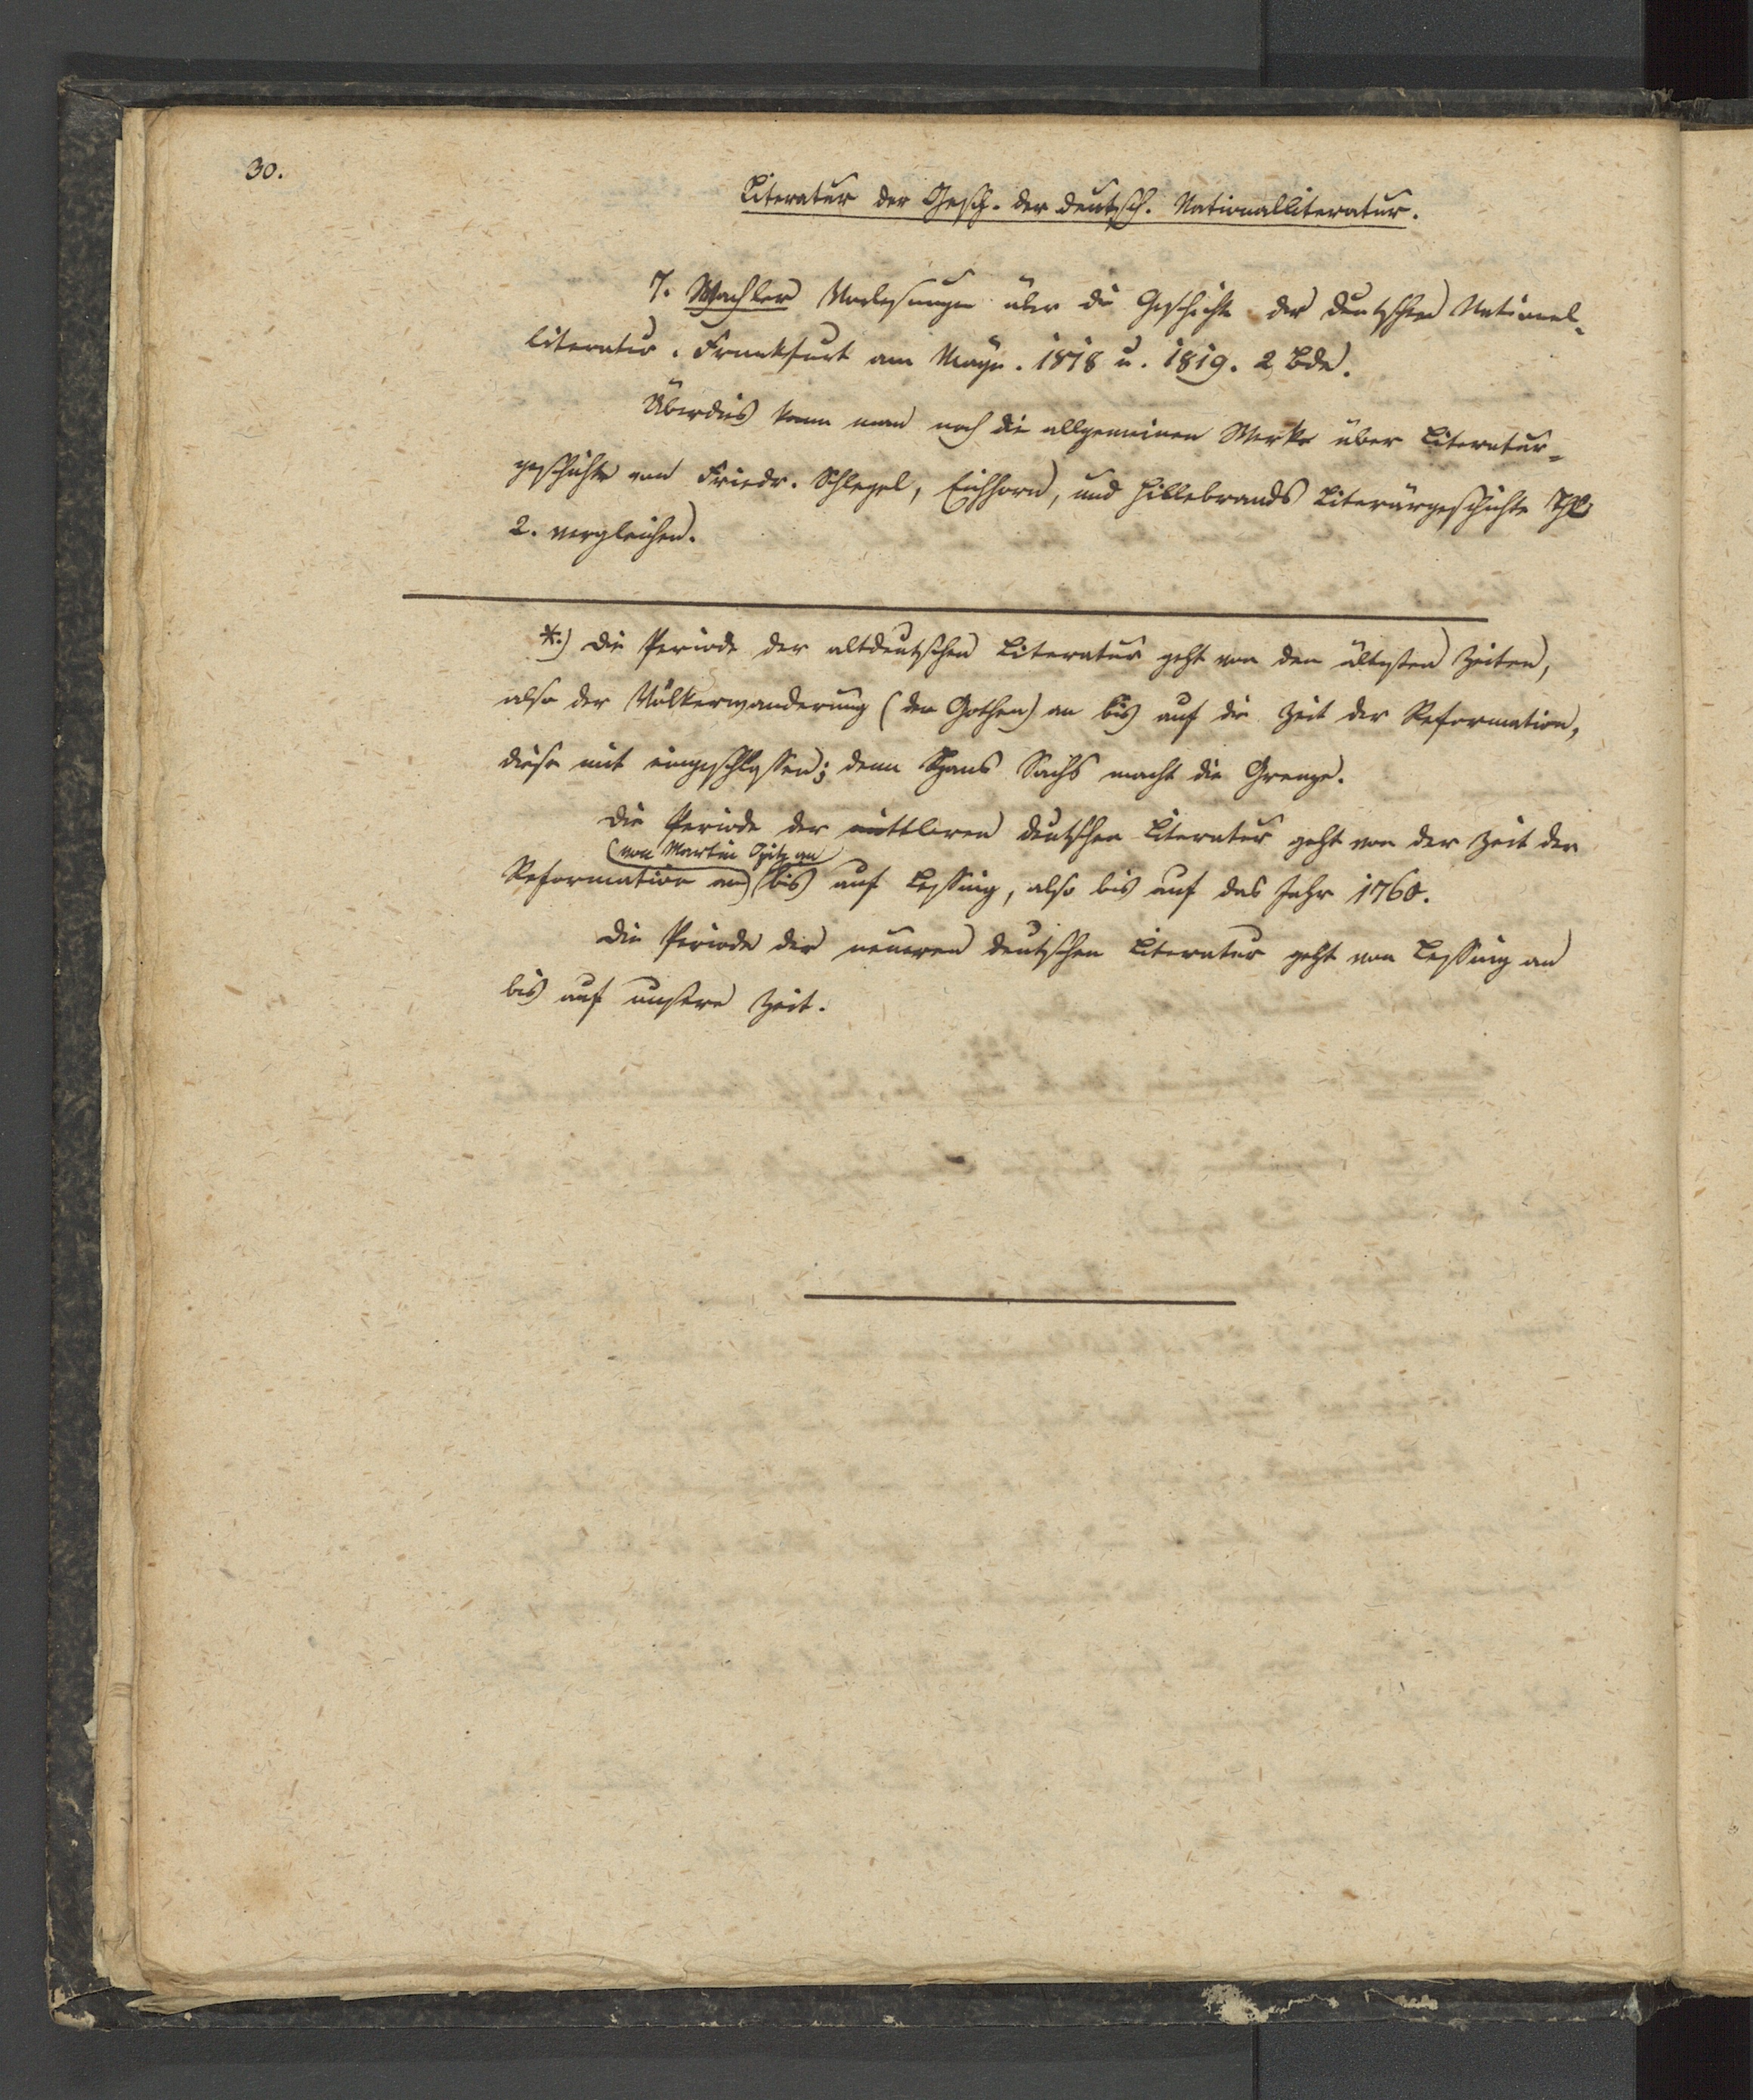 30.
Literatur der Gesch. der deutsch. Nationalliteratur.
7. Wachler Vorlesungen über die Geschichte der deutschen National-
literatur. Frankfurt am Mayn. 1818 u. 1819. 2 Bde.
Überdies kann man noch die allgemeinen Werke über Literatur-
geschichte von Friedr. Schlegel, Eichhorn, und Hillebrands Literärgeschichte Thl
2. vergleichen.
*) Die Periode der altdeutschen Literatur geht von den ältesten Zeiten,
also der Völkerwanderung (der Gothen) an bis auf die Zeit der Reformation,
diese mit eingeschlossen; denn Hans Sachs macht die Grenze.
Die Periode der mittleren deutschen Literatur geht von der Zeit der
(von Martin Opitz an)
Reformation an bis auf Lessing, also bis auf das Jahr 1760.
Die Periode der neueren deutschen Literatur geht von Lessing an
bis auf unsere Zeit.